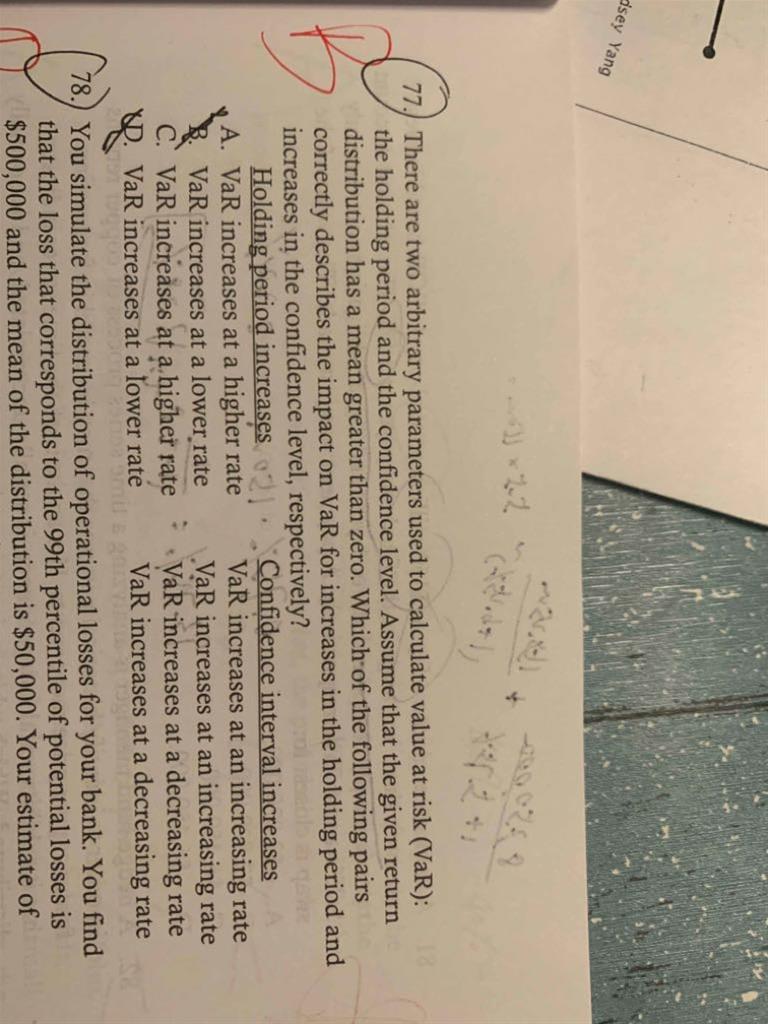 dsey Yang
B
77. There are two arbitrary parameters used to calculate value at risk (VaR):
the holding period and the confidence level. Assume that the given return
distribution has a mean greater than zero. Which of the following pairs
correctly describes the impact on VaR for increases in the holding period and
increases in the confidence level, respectively?
Holding period increases Confidence interval increases
A. VaR increases at a higher rate VaR increases at an increasing rate
B. VaR increases at a lower rate VaR increases at an increasing rate
C. VaR increases at a higher rate VaR increases at a decreasing rate
D. VaR increases at a lower rate VaR increases at a decreasing rate
78. You simulate the distribution of operational losses for your bank. You find
that the loss that corresponds to the 99th percentile of potential losses is
$500,000 and the mean of the distribution is $50,000. Your estimate of